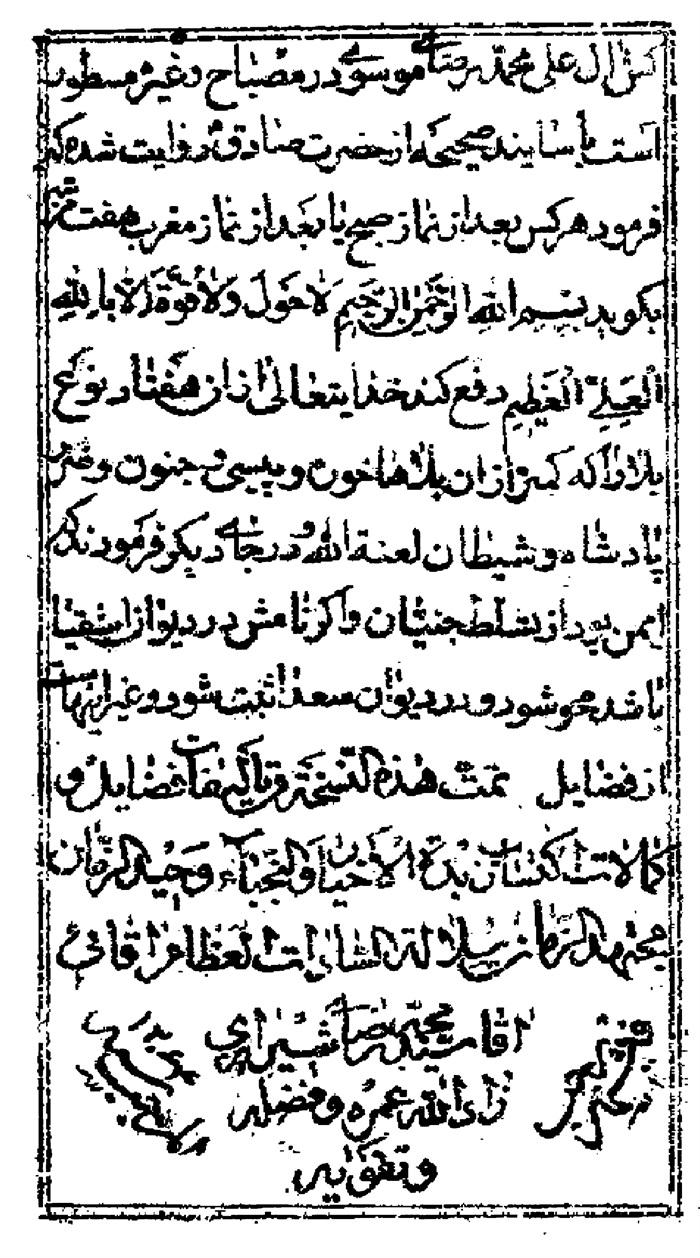 آل علی محمد رضای موسوی در مصباح و غیره مسطور
است باسانید صحیحه از حضرت صادق روایت شده که
فرمود هر کس بعد از نماز صبح یا بعد از نماز مغرب هفت مرتبه
بکوید بسم الله الرحمن الرحیم لا حول ولا قوة الا بالله
العلی العظیم دفع کند خدایتعالی از آن هفتاد نوع
بلا را که کمتر از آن بلاها خوره و پیسی و جنون و ضرر
پادشاه و شیطان لعنة الله و در جای دیکر فرمودند که
ایمن بود از تسلط جنیان و اکر نامش در دیوان اشقیا
باشد محو شود و در دیوان سعدا ثبت شود و غیر اینهاست
از فضایل تمت هذه النسخة فضایل و
کمالات زبدة الاخیار والنجباء وحید الزمان
مجتهد الزمان سلالة السادات العظام اقائی
اقا سید محمد رضا شیرازی
زاد الله عمره و فضله
و تقواه